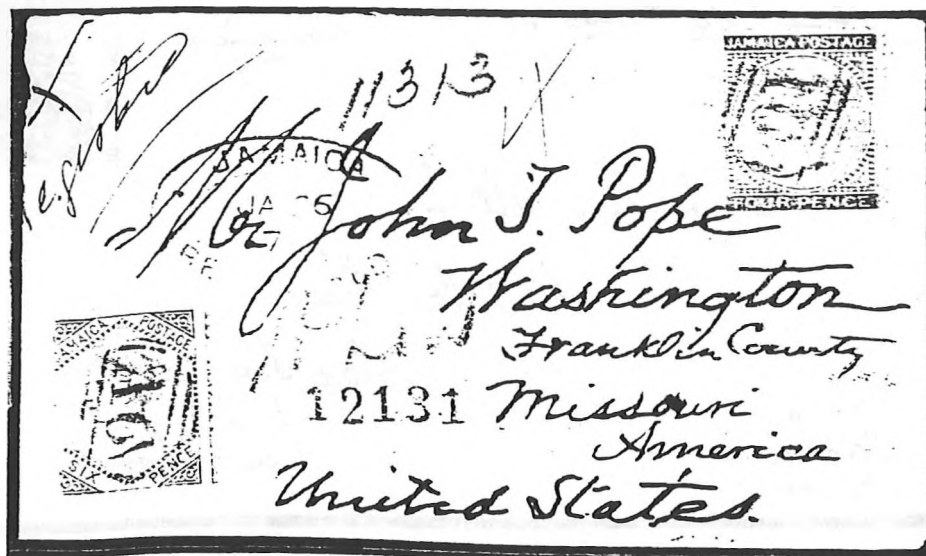 11313
JAMAICA POSTAGE
FOUR PENCE
JAMAICA
Mr John T. Pope
Washington
Franklin County
Missouri
America
United States.
12131
JAMAICA POSTAGE
SIX PENCE